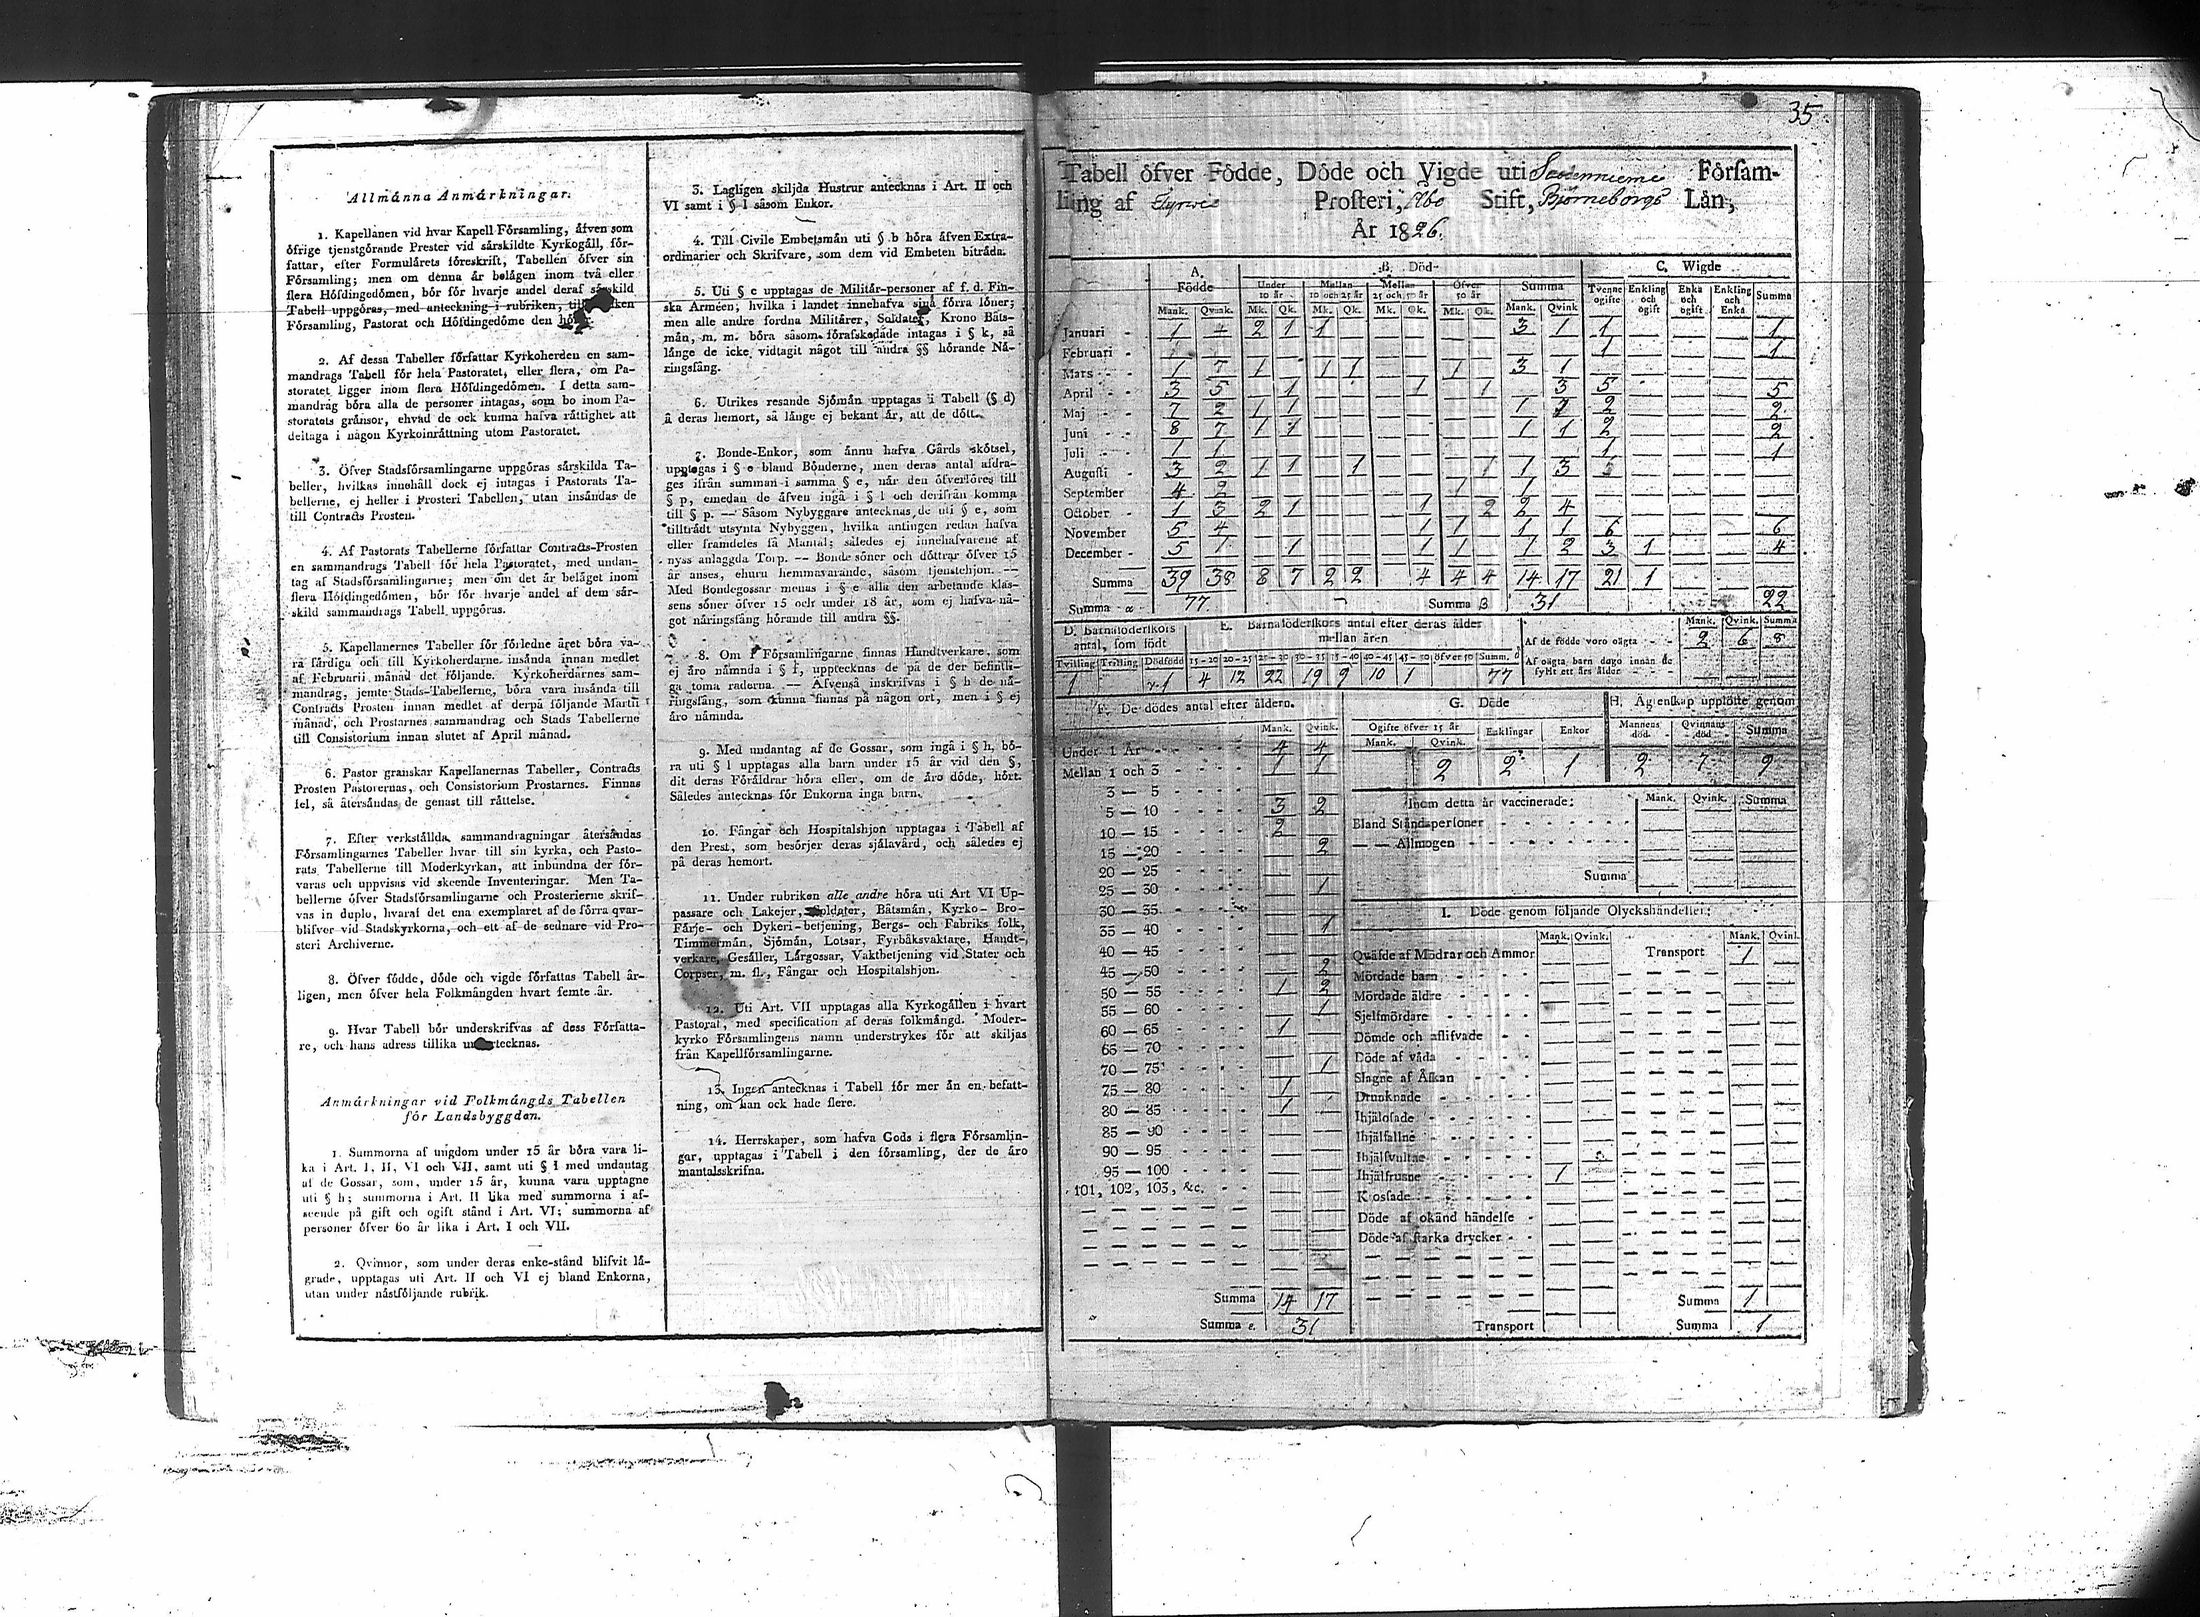 Allmånna Anmårkningar.
1. Kapellanen vid hvar Kapell Församling, åfven som
öfrige tjenstgörande Prester vid sårskildte Kyrkogåll, för-
fattar, efter Formulårets föreskrift, Tabellen öfver sin
Församling; men om denna år belågen inom två eller
flera Höfdingedömen, bör för hvarje andel deraf sårskild
Tabell uppgöras, med anteckning i rubriken, till
Församling, Pastorat och Höfdingedöme den
2. Af dessa Tabeller författar Kyrkoherden en sam-
mandrags Tabell för hela Pastoratet, eller flera, om Pa-
storatet ligger inom flera Höfdingedömen. I detta sam-
mandrag böra alla de personer intagas, som bo inom Pa-
storatets grånsor, ehvad de ock kunna hafva råttighet att
deltaga i någon Kyrkoinråttning utom Pastoratet.
3. Öfver Stadsförsamlingarne uppgöras sårskilda Ta-
beller, hvilkas innehåll dock ej intagas i Pastorats Ta-
bellerne, ej heller i Prosteri Tabellen, utan insåndas de
till Contracts Prosten.
4. Af Pastorats Tabellerne författar Contracts-Prosten
en sammandrags Tabell för hela Pastoratet, med undan-
tag af Stadsförsamlingarne; men om det år belåget inom
flera Höfdingedömen, bör för hvarje andel af dem sår-
skild sammandrags Tabell uppgöras.
5. Kapellanernes Tabeller för förledne året böra va-
ra fårdiga och till Kyrkoherdarne insånda innan medlet
af Februarii månad det följande. Kyrkoherdarnes sam-
mandrag, jemte Stads-Tabellerne, böra vara insånda till
Contracts Prosten innan medlet af derpå följande Martii
månad, och Prostarnes sammandrag och Stads Tabellerne
till Consistorium innan slutet af April månad.
6. Pastor granskar Kapellanernas Tabeller, Contracts
Prosten Pastorernas, och Consistorium Prostarnes. Finnas
fel, så återsåndas de genast till råttelse.
7. Efter verkstålda sammandragningar återsåndas
Församlingarnes Tabeller hvar till sin kyrka, och Pasto-
rats Tabellerne till Moderkyrkan, att inbundna der för-
varas och uppvisas vid skeende Inventeringar. Men Ta-
bellerne öfver Stadsförsamlingarne och Prosterierne skrif-
vas in duplo, hvaraf det ena exemplaret af de förra qvar-
blifver vid Stadskyrkorna, och ett af de sednare vid Pro-
steri Archiverne.
8. Öfver födde, döde och vigde författas Tabell år-
ligen, men öfver hela Folkmångden hvart femte år.
9. Hvar Tabell bör underskrifvas af dess Författa-
re, och hans adress tillika
Anmårkningar vid Folkmångds Tabellen
för Landsbyggden.
1. Summorna af ungdom under 15 år böra vara li-
ka i Art. I, II, VI och VII, samt uti § l med undantag
af de Gossar, som, under 15 år, kunna vara upptagne
uti § h; summorna i Art. II lika med summorna i af-
seende på gift och ogift stånd i Art. VI; summorna af
personer öfver 60 år lika i Art. I och VII.
2. Qvinnor, som under deras enke-stånd blifvit lå-
grade, upptagas uti Art. II och VI ej bland Enkorna,
utan under nåstföljande rubrik.
3. Lagligen skiljda Hustrur antecknas i Art. II och
VI samt i § l såsom Enkor.
4. Till Civile Embetsmån uti § b höra åfven Extra-
ordinarier och Skrifvare, som dem vid Embeten bitråda.
5. Uti § c upptagas de Militår-personer af f. d. Fin-
ska Armeen, hvilka i landet innehafva sina förra löner;
men alle andre fordna Militårer, Soldater, Krono Båts-
mån, m. m. böra såsom förafskedade intagas i § k, så
långe de icke vidtagit något till andra §§ hörande Nå-
ringsfång.
6. Utrikes resande Sjömån upptagas i Tabell (§ d)
å deras hemort, så långe ej bekant år, att de dött.
7. Bonde-Enkor, som ånnu hafva Gårds skötsel,
upptagas i § e bland Bönderne, men deras antal afdra-
ges ifrån summan i samma § e, når den öfverföres till
§ p, emedan de åfven ingå i § l och derifrån komma
till § p. — Såsom Nybyggare antecknas de uti § e, som
tilltrådt utsynta Nybyggen, hvilka antingen redan hafva
eller framdeles få Mantal; således ej innehafvarene af
nyss anlaggda Torp. — Bonde söner och döttrar öfver 15
år anses, ehuru hemmavarande, såsom tjenstehjon. —
Med Bondegossar menas i § e alla den arbetande klas-
sens söner öfver 15 och under 18 år, som ej hafva nå-
got nåringsfång hörande till andra §§.
8. Om i Församlingarne finnas Handtverkare, som
ej åro nåmnda i § f, upptecknas de på de der befintli-
ga toma raderna. — Åfvenså inskrifvas i § h de nå-
ringsfång, som kunna finnas på någon ort, men i § ej
åro nåmnda.
9. Med undantag af de Gossar, som ingå i § h, bö-
ra uti § l upptagas alla barn under 15 år vid den §,
dit deras Föråldrar höra eller, om de åro döde, hört.
Således antecknas för Enkorna inga barn.
10. Fångar och Hospitalshjon upptagas i Tabell af
den Prest, som besörjer deras sjålavård, och således ej
på deras hemort.
11. Under rubriken alle andre höra uti Art VI Up-
passare och Lakejer, Soldater, Båtsmån, Kyrko- Bro-
Fårje- och Dykeri-betjening, Bergs- och Fabriks folk,
Timmermån, Sjömån, Lotsar, Fyrbåksvaktare, Handt-
verkare, Gesåller, Lårgossar, Vaktbetjening vid Stater och
Corpser, m. fl., Fångar och Hospitalshjon.
12. Uti Art. VII upptagas alla Kyrkogållen i hvart
Pastorat, med specification af deras folkmångd. Moder-
kyrko Församlingens namn understrykes för att skiljas
från Kapellförsamlingarne.
13. Ingen antecknas i Tabell för mer ån en befatt-
ning, om han ock hade flere.
14. Herrskaper, som hafva Gods i flera Församlin-
gar, upptagas i Tabell i den församling, der de åro
mantalsskrifna.
35.
Tabell öfver Födde, Döde och Vigde uti Församling
af Tyrvis Prosteri, Åbo Stift, Björneborgs Län,
År 1826.
A. Födde B. Död- C. Wigde
Under 10 år Mellan 10 och 25 år Mellan 25 och 50 år Öfver 50 år Summa Tvenne ogifte Enkling och ogift Enka och ogift Enkling och Enka Summa
Mank. Qvink. Mk. Qk. Mk. Qk. Mk. Qk. Mk. Qk. Mank. Qvink
Januari 1 4 2 1 1 3 1 1 1
Februari 1 1
Mars 1 7 1 1 1 1 3 1
April 3 5 1 1 1 3 5 5
Maj 7 2 1 1 1 1 2 2
Juni 8 7 1 1 1 1 2 2
Juli 1 1 1 1
Augusti 3 2 1 1 1 1 1 3
September 4 2 1 1
October 1 3 2 1 1 2 2 4
November 5 4 1 1 1 1 6 6
December 5 1 1 1 1 1 2 3 1 4
Summa 39 38 8 7 2 2 4 4 4 14 17 21 1
Summa α 77 Summa β 31 22
D. Barnaföderskors antal, som födt
Tvilling Trilling Dödfödd
1 1
E. Barnaföderskors antal efter deras ålder mellan åren
15-20 20-25 25-30 30-35 35-40 40-45 45-50 öfver 50 Summ.
4 12 22 19 9 10 1 77
Mank. Qvink. Summa
Af de födde voro oägta 2 6 8
Af oägta barn dogo innan de
fyllt ett års ålder
F. De dödes antal efter åldern.
Mank. Qvink.
Under 1 År 4 4
Mellan 1 och 3 1 1
3 — 5
5 — 10 3 2
10 — 15 2
15 — 20 2
20 — 25
25 — 30 1
30 — 35
35 — 40 1
40 — 45
45 — 50 2
50 — 55 1 2
55 — 60 1
60 — 65 1
65 — 70
70 — 75 1
75 — 80 1
80 — 85 1
85 — 90
90 — 95
95 — 100
101, 102, 103, &c.
Summa 14 17
Summa ε. 31
G. Döde
Ogifte öfver 15 år Enklingar Enkor
Mank. Qvink.
2 2 1
H. Ägtenskap upplötte genom
Mannens död Qvinnans död Summa
2 7 9
Inom detta år vaccinerade: Mank. Qvink. Summa
Bland Ståndspersoner
— — Allmogen
Summa
I. Döde genom följande Olyckshändelser:
Mank. Qvink. Mank. Qvink.
Quäfde af Mödrar och Ammor Transport 1
Mördade barn
Mördade äldre
Sjelfmördare
Dömde och aflifvade
Döde af våda
Slagne af Åskan
Drunknade
Ihjälosade
Ihjälfallne
Ihjälsvultne
Ihjälfrusne 1
Krossade
Döde af okänd händelse
Döde af starka drycker
Summa 1
Transport Summa 1